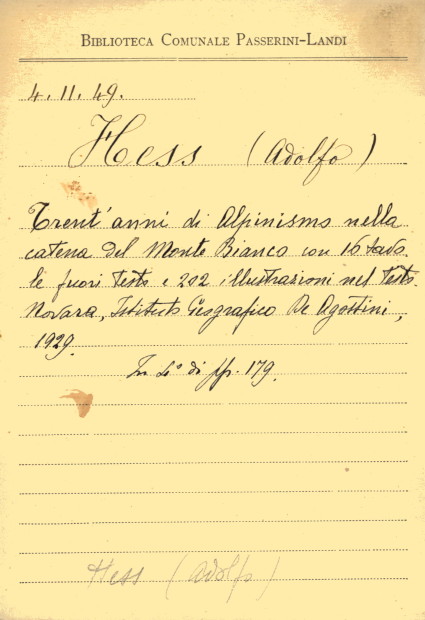 BIBLIOTECA COMUNALE PASSERINI-LANDI
4.11.49.
Hess (Adolfo)
Trent'anni di Alpinismo nella
catena del Monte Bianco con 16 tavo
le fuori testo e 202 illustrazioni nel testo.
Novara, Istituto Geografico De Agostini,
1929.
In 4° di pp. 179.
Hess (Adolfo)